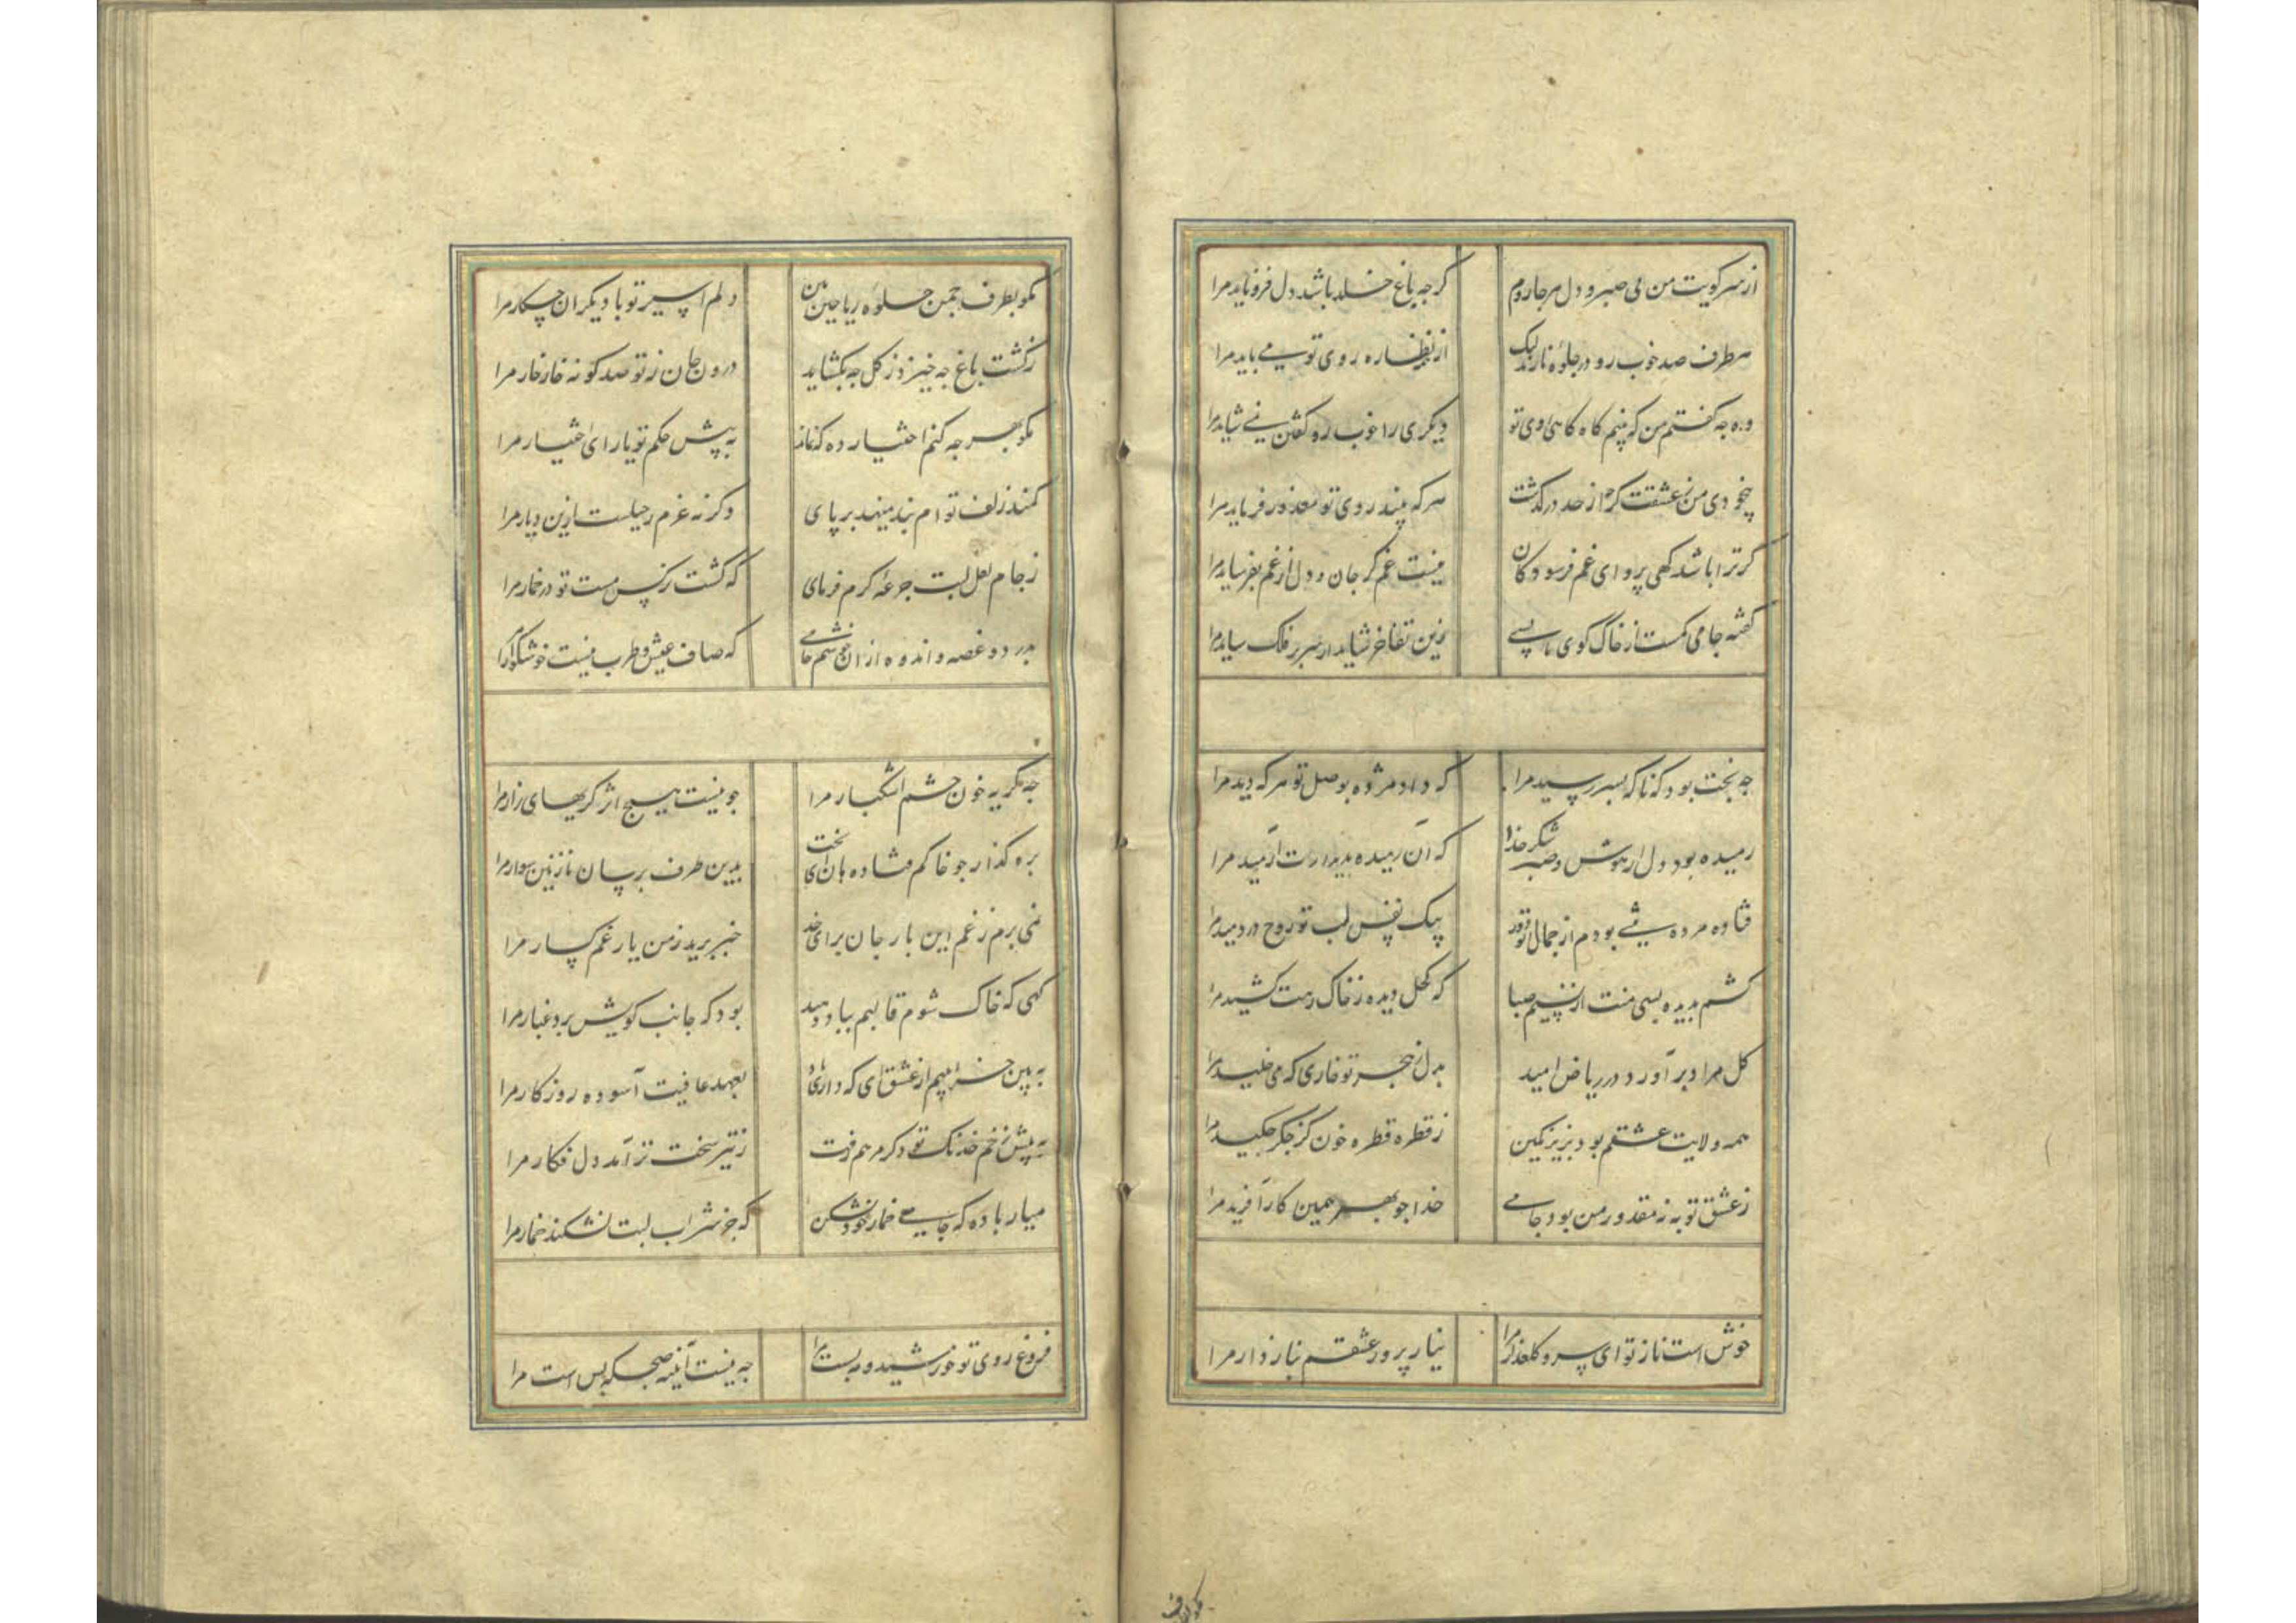 از سر کویت من بی صبر و دل هر جا روم گر چه باغ خلد باشد دل فرو ناید مرا
هر طرف صد خوب رو در جلوهٔ نازند لیک از نظاره روی تو می باید مرا
وه چه گفتم من که بینم گاه گاهی روی تو دیگری را خوب رو گفتن نمی شاید مرا
بیخودی من ز عشقت گر چه از حد درگذشت هر که بیند روی تو معذور فرماید مرا
گر ترا باشد گهی پروای غم فرسودگان نیست غم گر جان و دل از غم بفرساید مرا
گفته جامی کمست از خاک کوی ما بسی زین تفاخر شاید ار سر بر فلک ساید مرا
چه بخت بود که ناگه بسر رسید مرا که داد مژده بوصل تو هر که دید مرا
رمیده بود دل از هوش و صبر شکر خدا که آن رمیده بدیدارت آرمید مرا
فتاده مرده تنی بودم از جمال تو دور بیک نفس لب تو روح در دمید مرا
کشم بدیده بسی منت از نسیم صبا که کحل دیده ز خاک رهت کشید مرا
گل مراد برآورد در ریاض امید بدل ز خنجر تو خاری که می خلید مرا
همه ولایت عشقم بود بزیر نگین ز قطره قطره خون کز جگر چکید مرا
ز عشق توبه نه مقدور من بود جامی خدا چو بهر همین کار آفرید مرا
خوش است ناز تو ای سرو گلعذار مرا نیاز پرور عشقم بناز دار مرا
مگو بطرف چمن جلوه ریاحین بین دلم اسیر تو با دیگران چکار مرا
ز گشت باغ چه خیزد ز گل چه بگشاید درون جان ز تو صد گونه خار خار مرا
مگو بهر چه کنم اختیار ده که نماند به پیش حکم تو یارای اختیار مرا
کمند زلف توام بند می نهد بر پای وگر نه عزم رحیلست ازین دیار مرا
ز جام لعل لبت جرعهٔ کرم فرمای که کشت نرگس مست تو در خمار مرا
بدرد و غصه و اندوه از ان خوشم جامی که صاف عیش و طرب نیست خوشگوار مرا
چه نگرید خون چشم اشکبار مرا چو نیست هیچ اثر گریهای زار مرا
بره گذار چو خاکم فتاده هان ای بخت بدین طرف برسان نازنین سوار مرا
نمی برم ز غم این بار جان برای خدا خبر برید ز من یار غمگسار مرا
گهی که خاک شوم قالبم بباد دهید بود که جانب کویش برد غبار مرا
به بین خرابیم از عشق ای که داری بعهد عافیت آسوده روزگار مرا
به پیش زخم خدنگ تو ذکر مرهم رفت ز تیر سخت تر آمد دل فکار مرا
میار باده که جامی خمار خود نشکن که جز شراب لبت نشکند خمار مرا
فروغ روی تو خورشید و مه بست مرا چه نیست آینه صبحگه بس است مرا
مگو بطرف